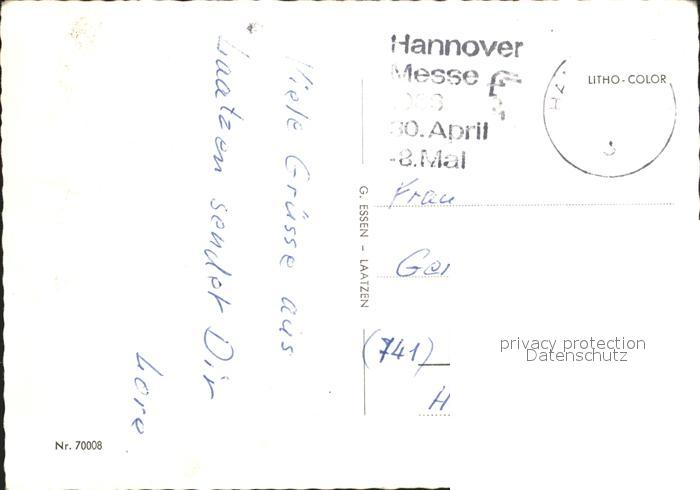 Hannover
Messe
30. April
-8. Mai
LITHO-COLOR
Viele Grüsse aus
Laatzen sendet Dir
Lore
G. ESSEN - LAATZEN
Frau
Ger
(741)
H
privacy protection
Datenschutz
Nr. 70008